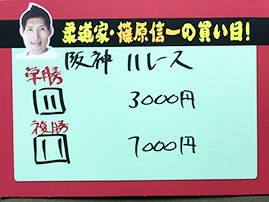 柔道家・篠原信一の買い目！
阪神 11レース
単勝
11 3000円
複勝
11 7000円